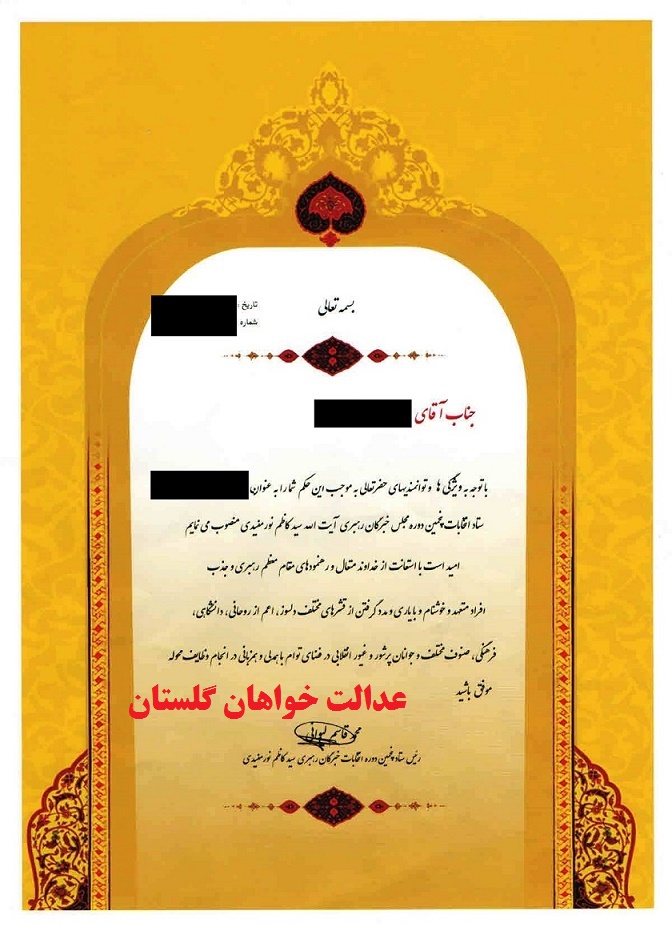 بسمه تعالی
تاریخ :
شماره
جناب آقای
با توجه به ویژگی ها و توانمندیهای حضرتعالی به موجب این حکم شما را به عنوان
ستاد انتخابات پنجمین دوره مجلس خبرگان رهبری آیت الله سید کاظم نورمفیدی منصوب می نمایم
امید است با استعانت از خداوند متعال و رهنمودهای مقام معظم رهبری و جذب
افراد متعهد و خوشنام و با یاری و مدد گرفتن از قشرهای مختلف دلسوز ، اعم از روحانی، دانشگاهی،
فرهنگی، صنوف مختلف و جوانان پرشور و غیور انقلابی در فضای توام با همدلی و همزبانی در انجام وظایف محوله
موفق باشید
عدالت خواهان گلستان
قاسم
رئیس ستاد پنجمین دوره انتخابات خبرگان رهبری سید کاظم نورمفیدی